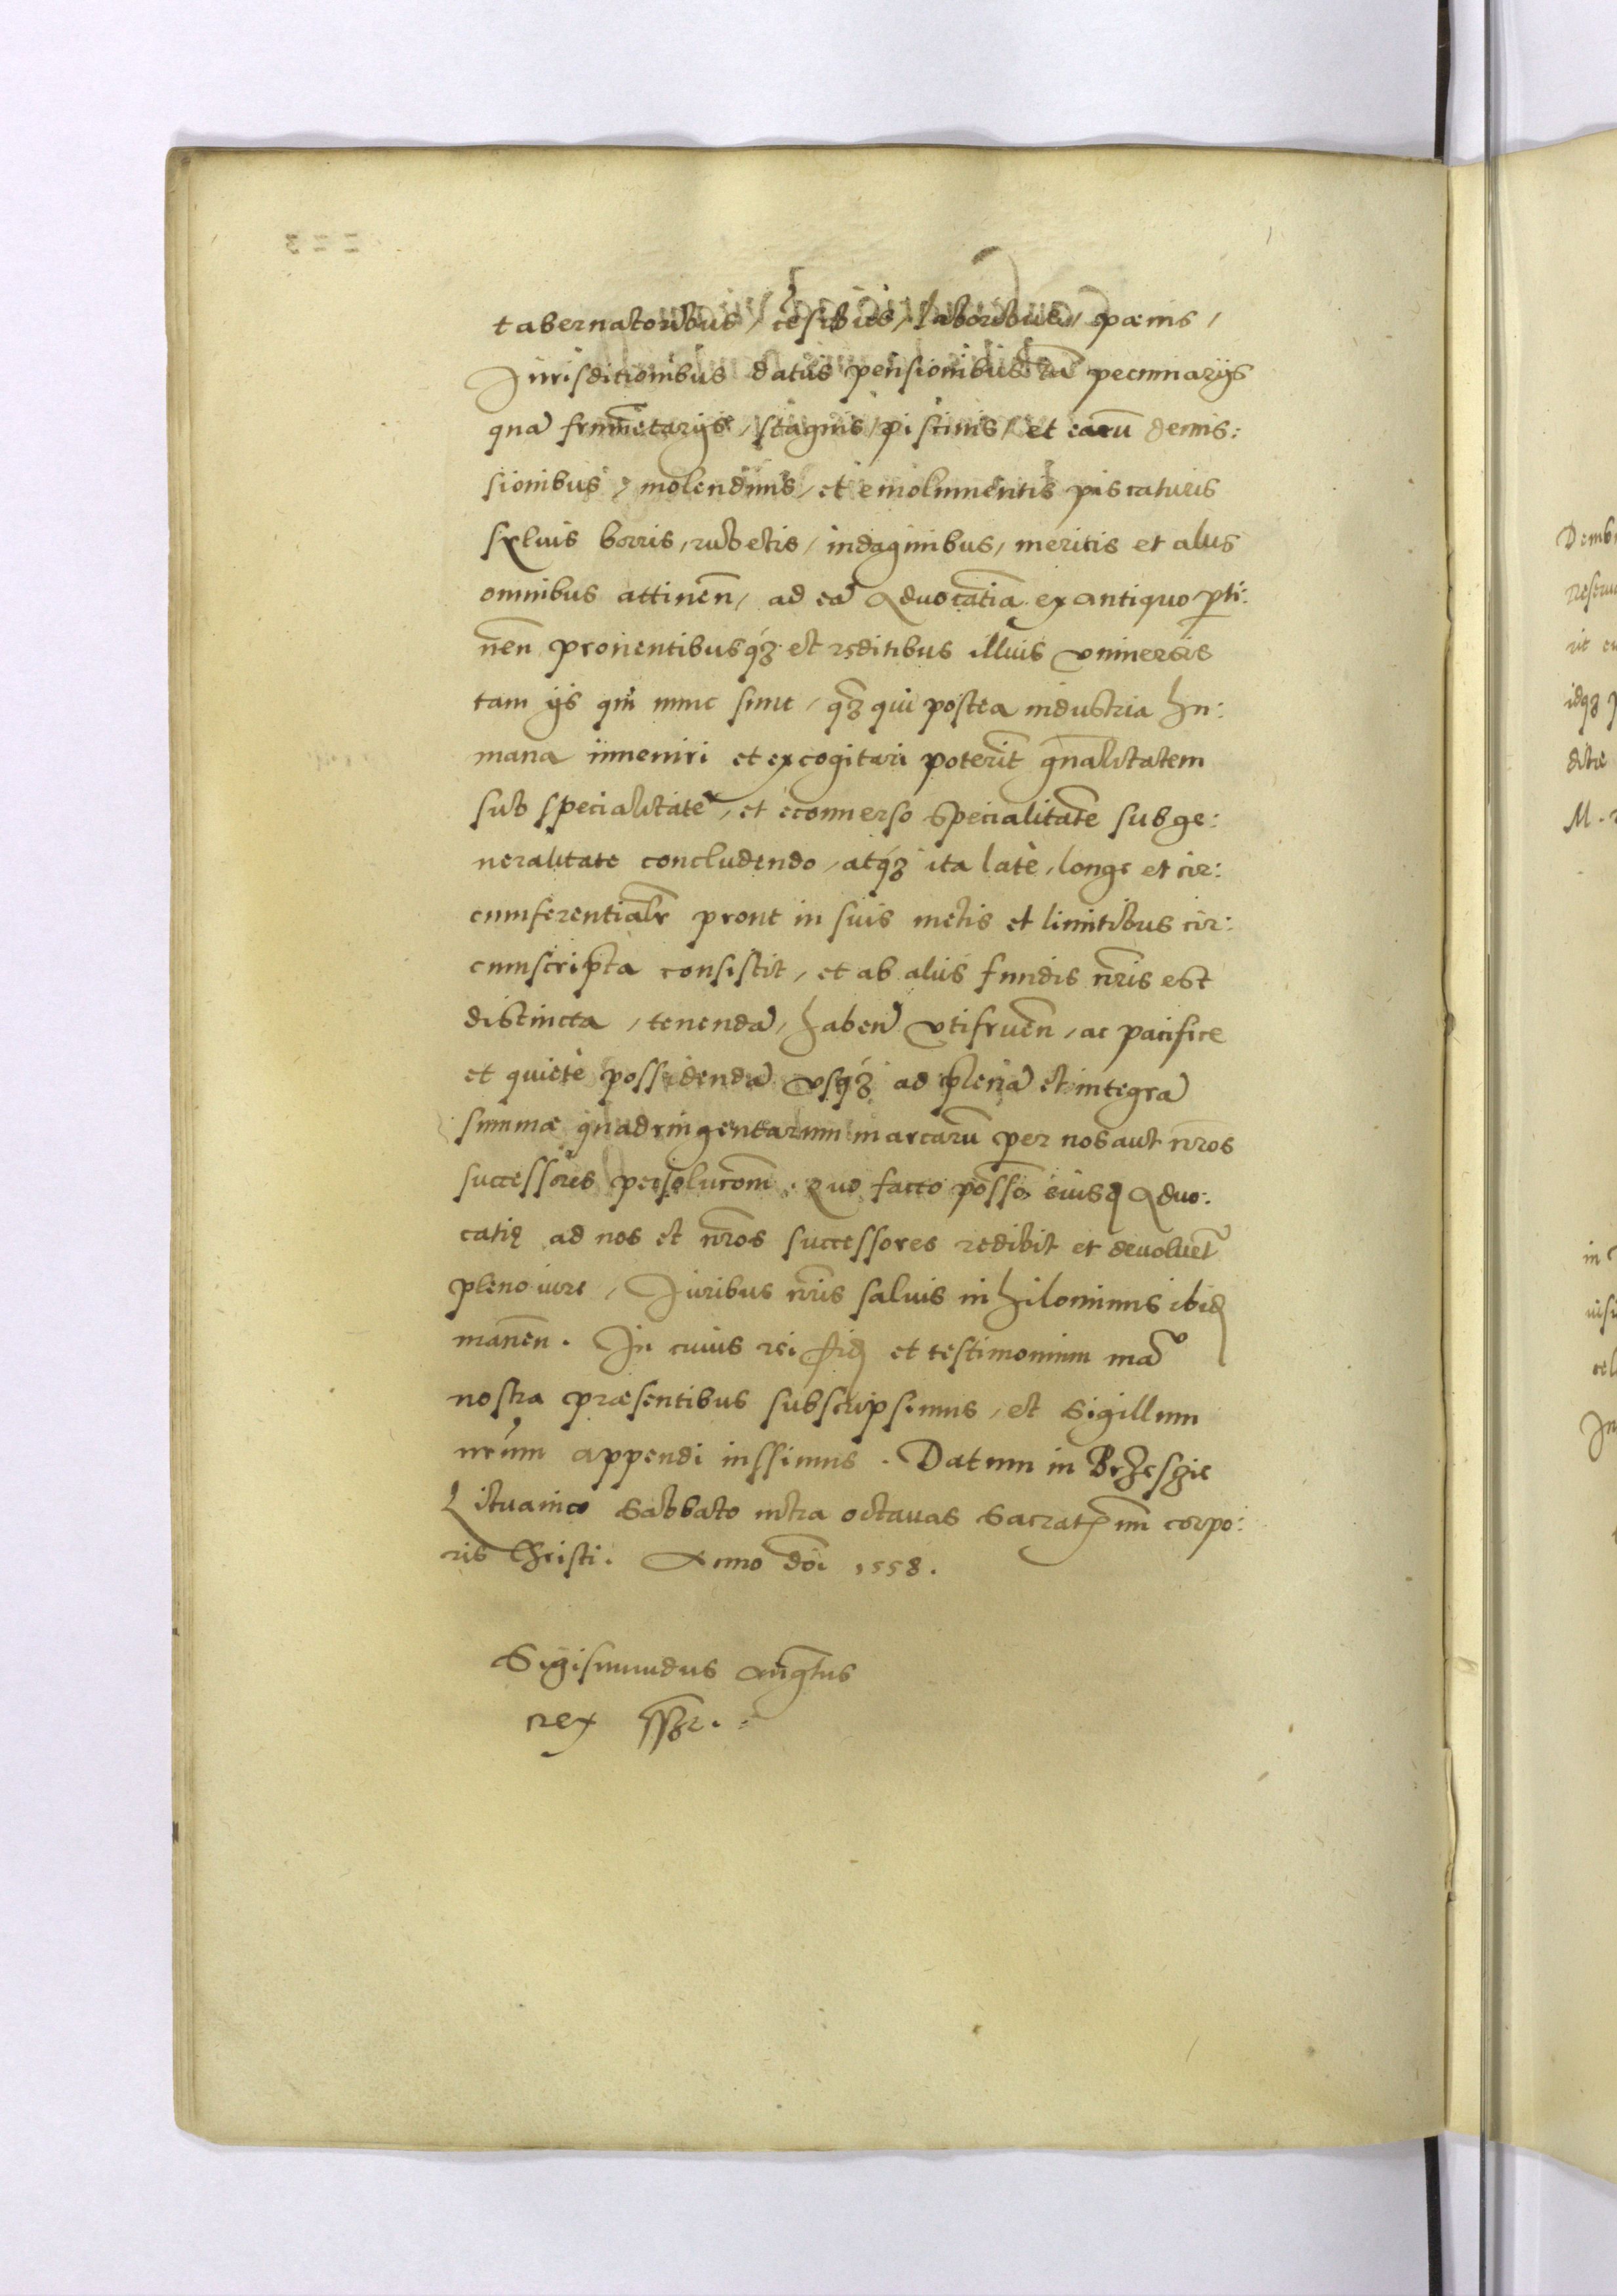 tabernatoribus, cēsibus, laboribus, pænis,
Jurisditionibus datijs pensionibus tā pecuniarijs
quā frumētarijs, stagnis, piscinis, et earū demis:
sionibus, molendinis, et emolumentis piscaturis
sylvis borris, rubetis, indaginibus, mericis et alijs
omnibus attineñ, ad eā Aduocatiā ex antiquo ꝑti:
neñ prouentibusq́ꝫ et reditibus illius vniuersis
tam ijs qui nunc sunt, qꝫ qui postea industria hu:
mana inueniri et excogitari poterīt gñalitatem
sub specialitate, et econuerso specialitatē sub ge:
neralitate concludendo, atq́ꝫ ita late, longe et cir:
cumferentialr̄ prout in suis metis et limitibus cir:
cumscripta consistit, et ab alijs fundis nr̄is est
distincta, tenendā, habeñ vtifrueñ, ac pacifice
et quiete possidendā vsq́ꝫ ad plenā et integrā
summæ quadringentarum marcarū per nos aut nr̄os
successores persolucōm. Quo facto possō eiusđ Aduo:
catię ad nos et nr̄os successores redibit et deuoluet̃
pleno iure, Juribus nr̄is saluis nihilominus ibiđ
maneñ. In cuius rei fiđ et testimonium mañ
nostra præsentibus subscripsimus, et Sigillum
nrūm appendi iussimus. Datum in Brzesczie
Lituanico Sabbato intra octauas Sacratiss̄imi corpo:
ris Christi. Anno dōi 1558.
Sigismundus Augtus
rex sszt.